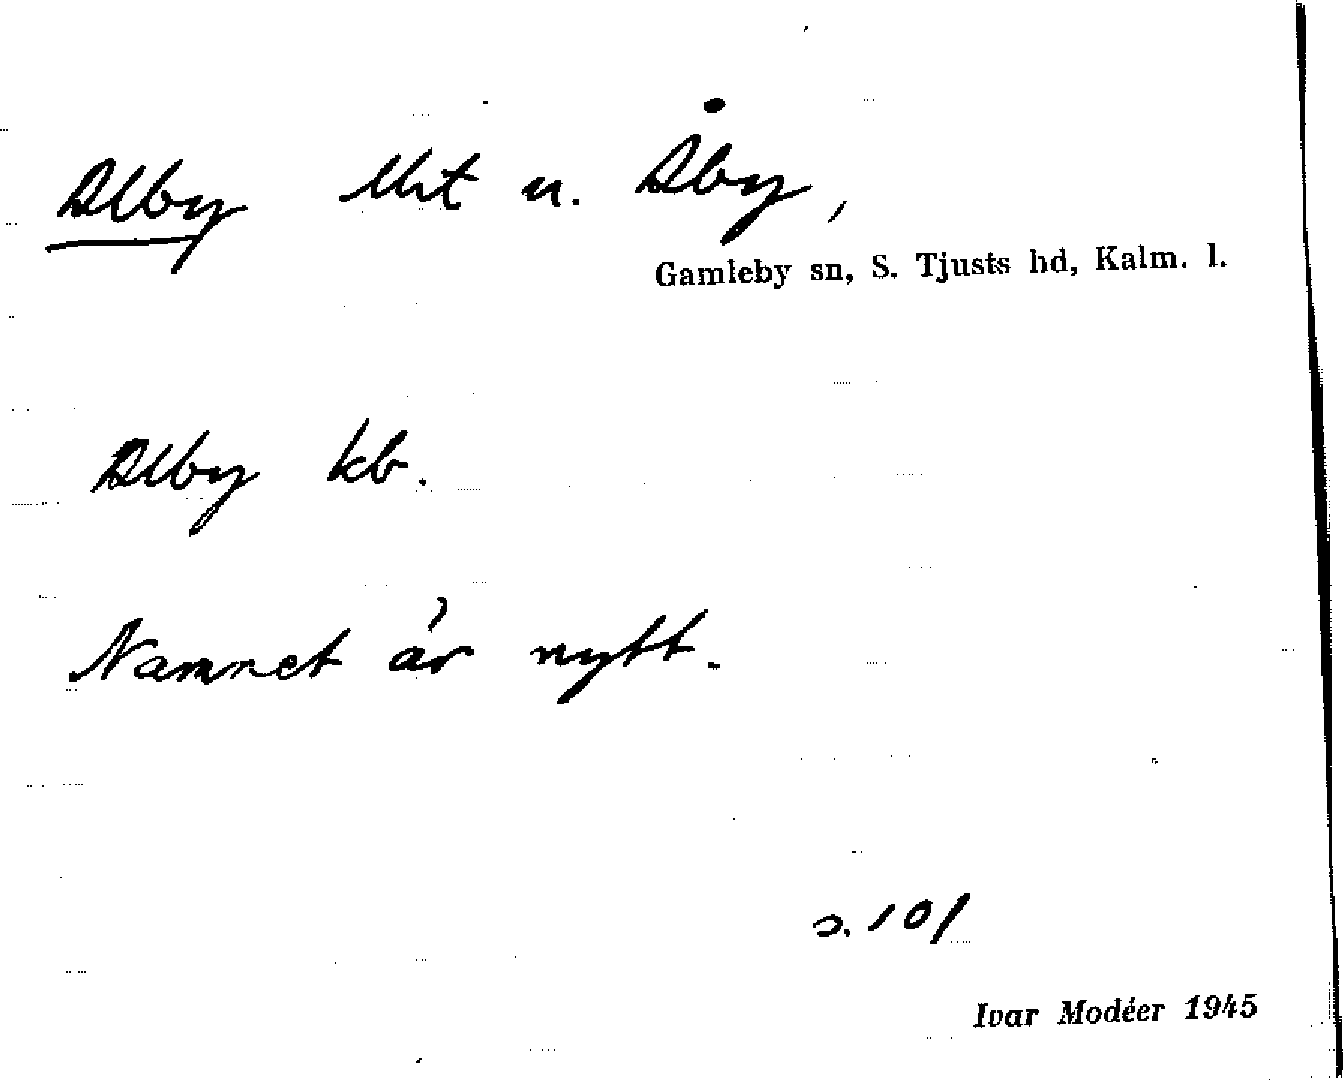 Alby lht u. Åby,
Gamleby sn, S. Tjusts hd, Kalm. l.
Alby kb.
Namnet är nytt.
s. 101
Ivar Modéer 1945